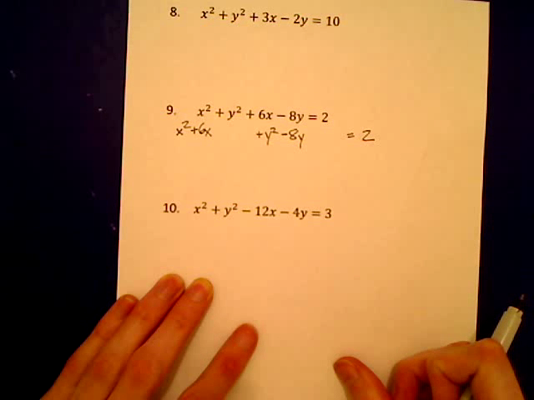 8. x² + y² + 3x − 2y = 10
9. x² + y² + 6x − 8y = 2
x²+6x +y²−8y = 2
10. x² + y² − 12x − 4y = 3